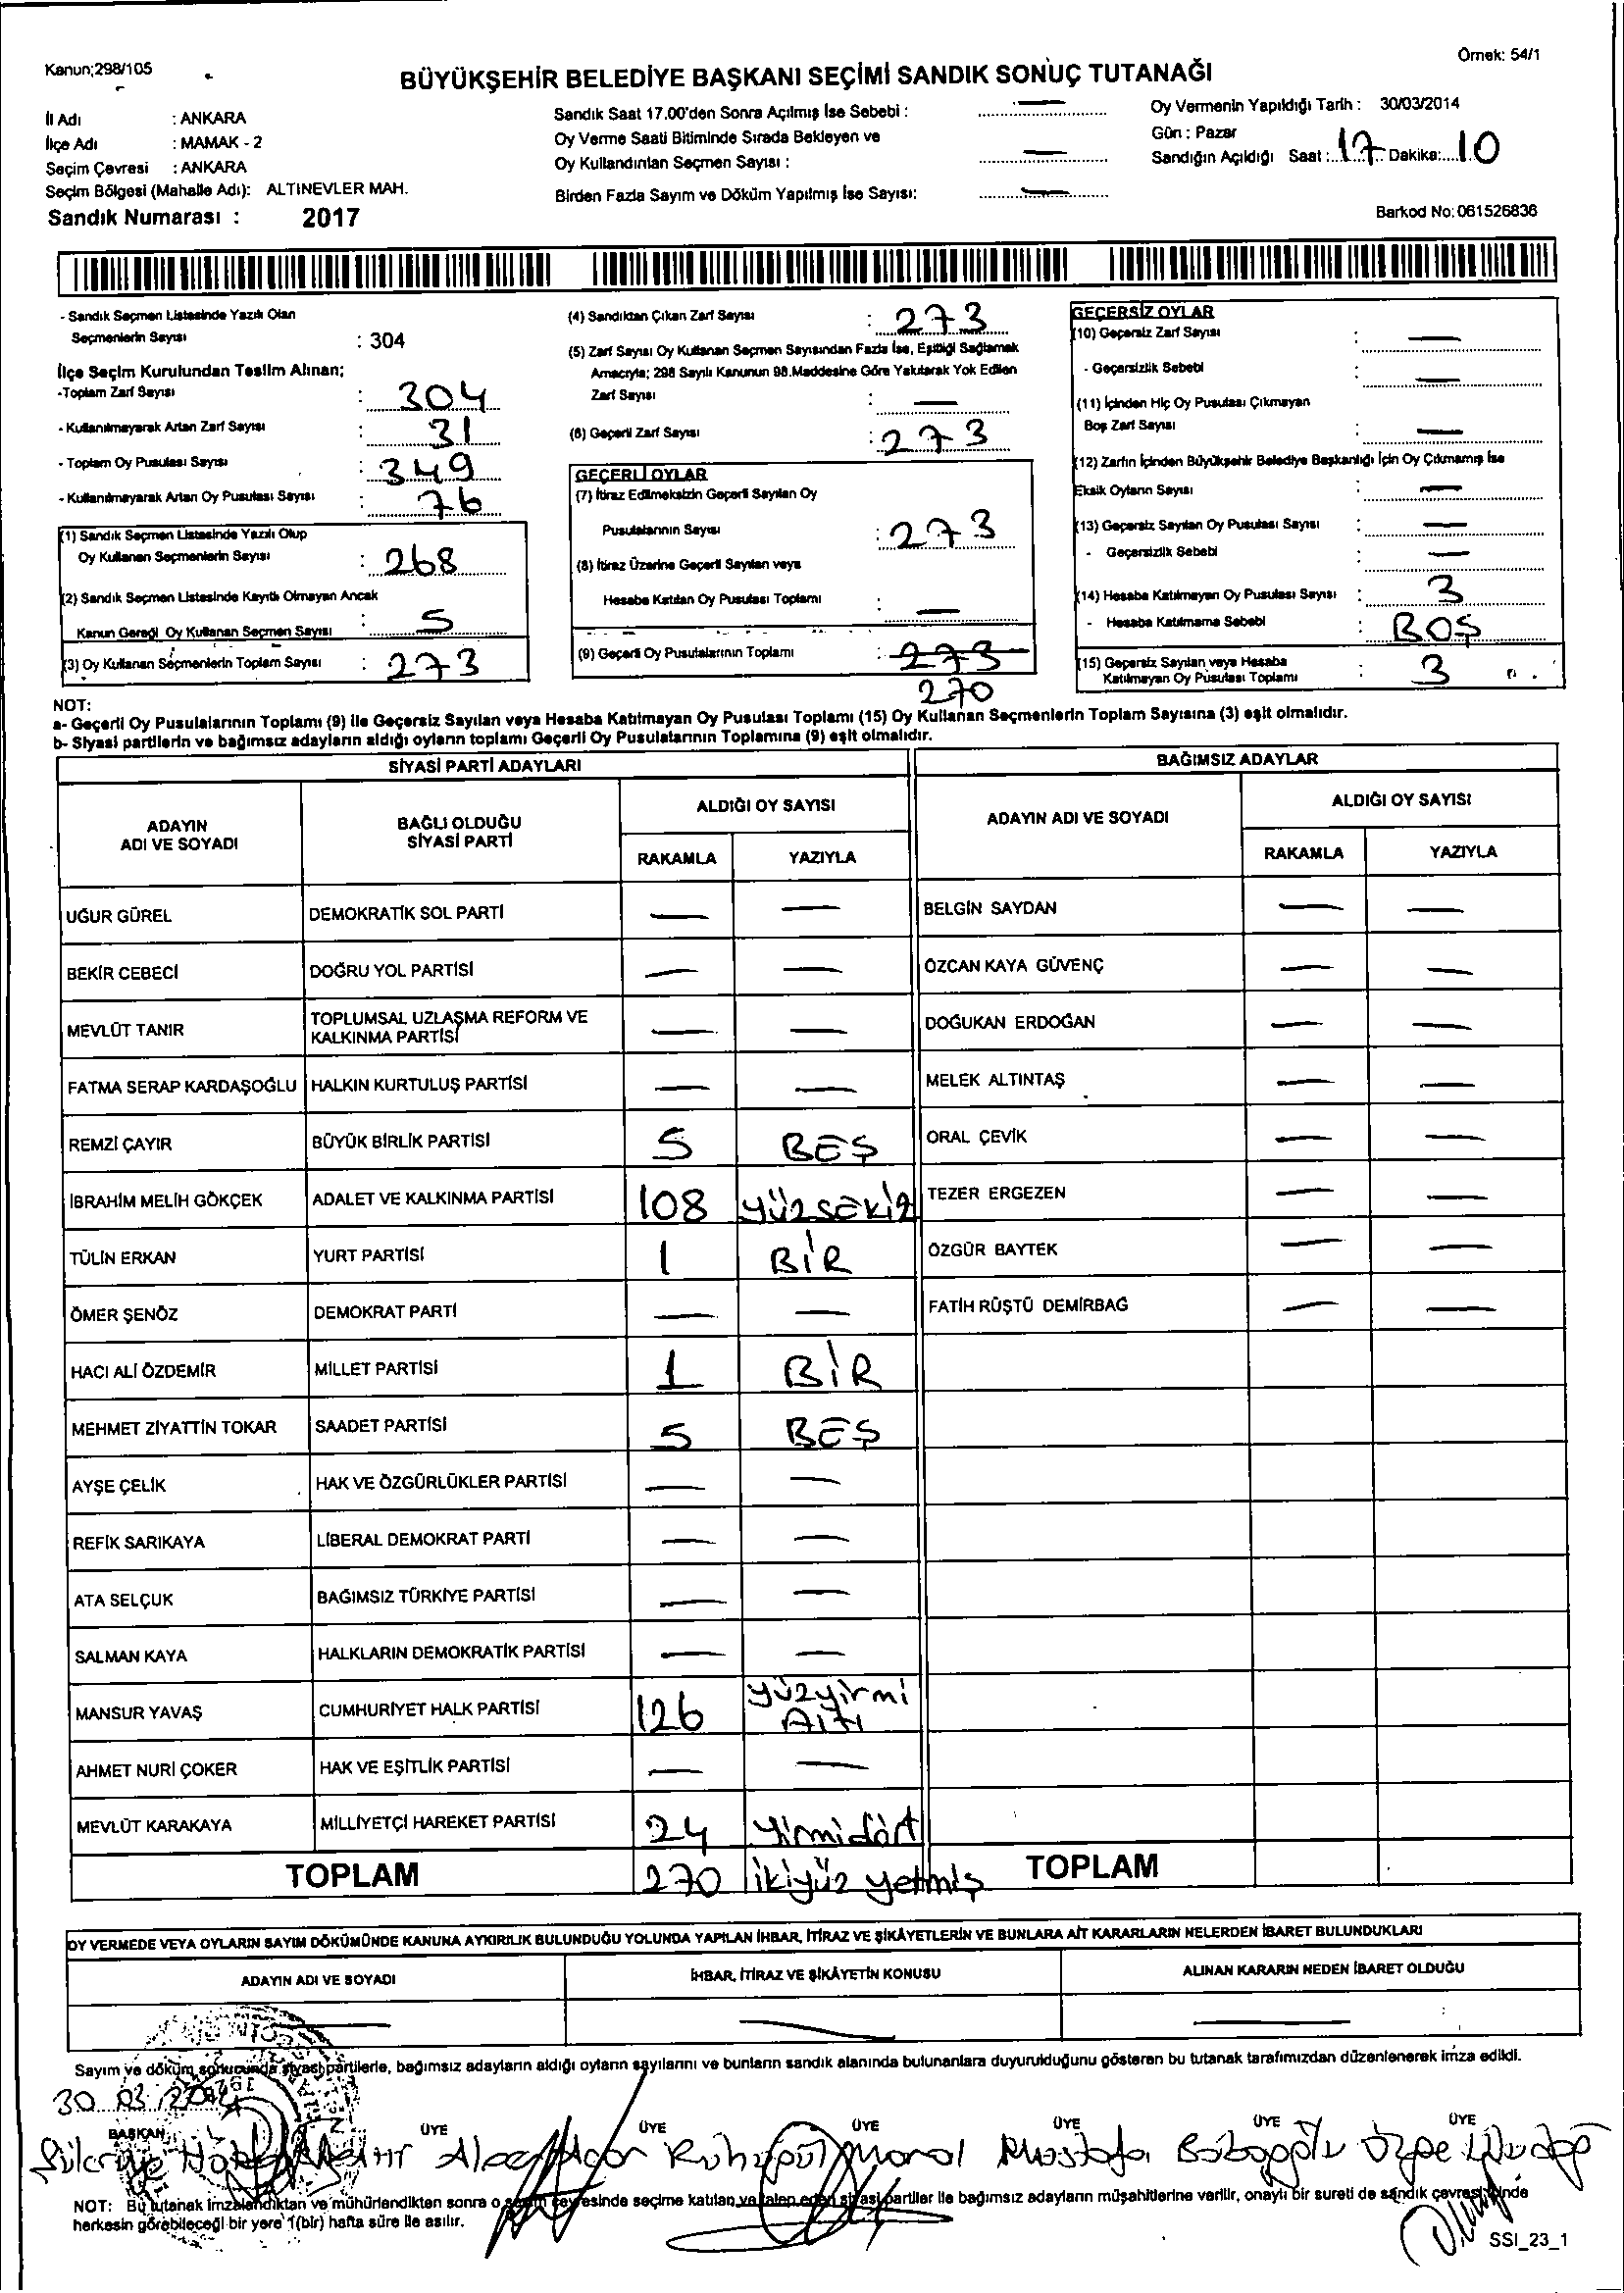 Kanun;298/105
Örnek: 54/1
BÜYÜKŞEHİR BELEDİYE BAŞKANI SEÇİMİ SANDIK SONUÇ TUTANAĞI
İl Adı : ANKARA
İlçe Adı : MAMAK - 2
Seçim Çevresi : ANKARA
Seçim Bölgesi (Mahalle Adı): ALTINEVLER MAH.
Sandık Numarası : 2017
Sandık Saat 17.00'den Sonra Açılmış İse Sebebi : —
Oy Verme Saati Bitiminde Sırada Bekleyen ve
Oy Kullandırılan Seçmen Sayısı : —
Birden Fazla Sayım ve Döküm Yapılmış İse Sayısı: —
Oy Vermenin Yapıldığı Tarih : 30/03/2014
Gün : Pazar
Sandığın Açıldığı Saat : 17 Dakika: 10
Barkod No: 061526836
- Sandık Seçmen Listesinde Yazılı Olan
Seçmenlerin Sayısı : 304
İlçe Seçim Kurulundan Teslim Alınan;
-Toplam Zarf Sayısı : 304
- Kullanılmayarak Artan Zarf Sayısı : 31
- Toplam Oy Pusulası Sayısı : 349
- Kullanılmayarak Artan Oy Pusulası Sayısı : 76
(1) Sandık Seçmen Listesinde Yazılı Olup
Oy Kullanan Seçmenlerin Sayısı : 268
(2) Sandık Seçmen Listesinde Kayıtlı Olmayan Ancak
Kanun Gereği Oy Kullanan Seçmen Sayısı : 5
(3) Oy Kullanan Seçmenlerin Toplam Sayısı : 273
(4) Sandıktan Çıkan Zarf Sayısı : 273
(5) Zarf Sayısı Oy Kullanan Seçmen Sayısından Fazla İse, Eşitliği Sağlamak
Amacıyla; 298 Sayılı Kanunun 98.Maddesine Göre Yakılarak Yok Edilen
Zarf Sayısı : —
(6) Geçerli Zarf Sayısı : 273
GEÇERLİ OYLAR
(7) İtiraz Edilmeksizin Geçerli Sayılan Oy
Pusulalarının Sayısı : 273
(8) İtiraz Üzerine Geçerli Sayılan veya
Hesaba Katılan Oy Pusulası Toplamı : —
(9) Geçerli Oy Pusulalarının Toplamı : 273
270
GEÇERSİZ OYLAR
(10) Geçersiz Zarf Sayısı : —
- Geçersizlik Sebebi : —
(11) İçinden Hiç Oy Pusulası Çıkmayan
Boş Zarf Sayısı : —
(12) Zarfın İçinden Büyükşehir Belediye Başkanlığı İçin Oy Çıkmamış İse
Eksik Oyların Sayısı : —
(13) Geçersiz Sayılan Oy Pusulası Sayısı : —
- Geçersizlik Sebebi : —
(14) Hesaba Katılmayan Oy Pusulası Sayısı : 3
- Hesaba Katılmama Sebebi : BOŞ
(15) Geçersiz Sayılan veya Hesaba
Katılmayan Oy Pusulası Toplamı : 3
NOT:
a- Geçerli Oy Pusulalarının Toplamı (9) ile Geçersiz Sayılan veya Hesaba Katılmayan Oy Pusulası Toplamı (15) Oy Kullanan Seçmenlerin Toplam Sayısına (3) eşit olmalıdır.
b- Siyasi partilerin ve bağımsız adayların aldığı oyların toplamı Geçerli Oy Pusulalarının Toplamına (9) eşit olmalıdır.
SİYASİ PARTİ ADAYLARI
ADAYIN
ADI VE SOYADI
BAĞLI OLDUĞU
SİYASİ PARTİ
ALDIĞI OY SAYISI
RAKAMLA YAZIYLA
UĞUR GÜREL DEMOKRATİK SOL PARTİ — —
BEKİR CEBECİ DOĞRU YOL PARTİSİ — —
MEVLÜT TANIR TOPLUMSAL UZLAŞMA REFORM VE
KALKINMA PARTİSİ — —
FATMA SERAP KARDAŞOĞLU HALKIN KURTULUŞ PARTİSİ — —
REMZİ ÇAYIR BÜYÜK BİRLİK PARTİSİ 5 BEŞ
İBRAHİM MELİH GÖKÇEK ADALET VE KALKINMA PARTİSİ 108 yüzsekiz
TÜLİN ERKAN YURT PARTİSİ 1 BİR
ÖMER ŞENÖZ DEMOKRAT PARTİ — —
HACI ALİ ÖZDEMİR MİLLET PARTİSİ 1 BİR
MEHMET ZİYATTİN TOKAR SAADET PARTİSİ 5 BEŞ
AYŞE ÇELİK HAK VE ÖZGÜRLÜKLER PARTİSİ — —
REFİK SARIKAYA LİBERAL DEMOKRAT PARTİ — —
ATA SELÇUK BAĞIMSIZ TÜRKİYE PARTİSİ — —
SALMAN KAYA HALKLARIN DEMOKRATİK PARTİSİ — —
MANSUR YAVAŞ CUMHURİYET HALK PARTİSİ 126 yüzyirmi
Altı
AHMET NURİ ÇOKER HAK VE EŞİTLİK PARTİSİ — —
MEVLÜT KARAKAYA MİLLİYETÇİ HAREKET PARTİSİ 24 yirmidört
TOPLAM 270 ikiyüz yetmiş
BAĞIMSIZ ADAYLAR
ADAYIN ADI VE SOYADI
ALDIĞI OY SAYISI
RAKAMLA YAZIYLA
BELGİN SAYDAN — —
ÖZCAN KAYA GÜVENÇ — —
DOĞUKAN ERDOĞAN — —
MELEK ALTINTAŞ — —
ORAL ÇEVİK — —
TEZER ERGEZEN — —
ÖZGÜR BAYTEK — —
FATİH RÜŞTÜ DEMİRBAĞ — —
TOPLAM
OY VERMEDE VEYA OYLARIN SAYIM DÖKÜMÜNDE KANUNA AYKIRILIK BULUNDUĞU YOLUNDA YAPILAN İHBAR, İTİRAZ VE ŞİKÂYETLERİN VE BUNLARA AİT KARARLARIN NELERDEN İBARET BULUNDUKLARI
ADAYIN ADI VE SOYADI İHBAR, İTİRAZ VE ŞİKÂYETİN KONUSU ALINAN KARARIN NEDEN İBARET OLDUĞU
— — —
Sayım ve döküm sonucunda siyasi partilerle, bağımsız adayların aldığı oyların sayılarını ve bunların sandık alanında bulunanlara duyurulduğunu gösteren bu tutanak tarafımızdan düzenlenerek imza edildi.
30 03 2014
BAŞKAN ÜYE ÜYE ÜYE ÜYE ÜYE ÜYE
Mustafa
NOT: Bu tutanak imzalandıktan ve mühürlendikten sonra o seçim çevresinde seçime katılan ve talep eden siyasi partiler ile bağımsız adayların müşahitlerine verilir, onaylı bir sureti de sandık çevresi içinde
herkesin görebileceği bir yere 1(bir) hafta süre ile asılır.
SSI_23_1